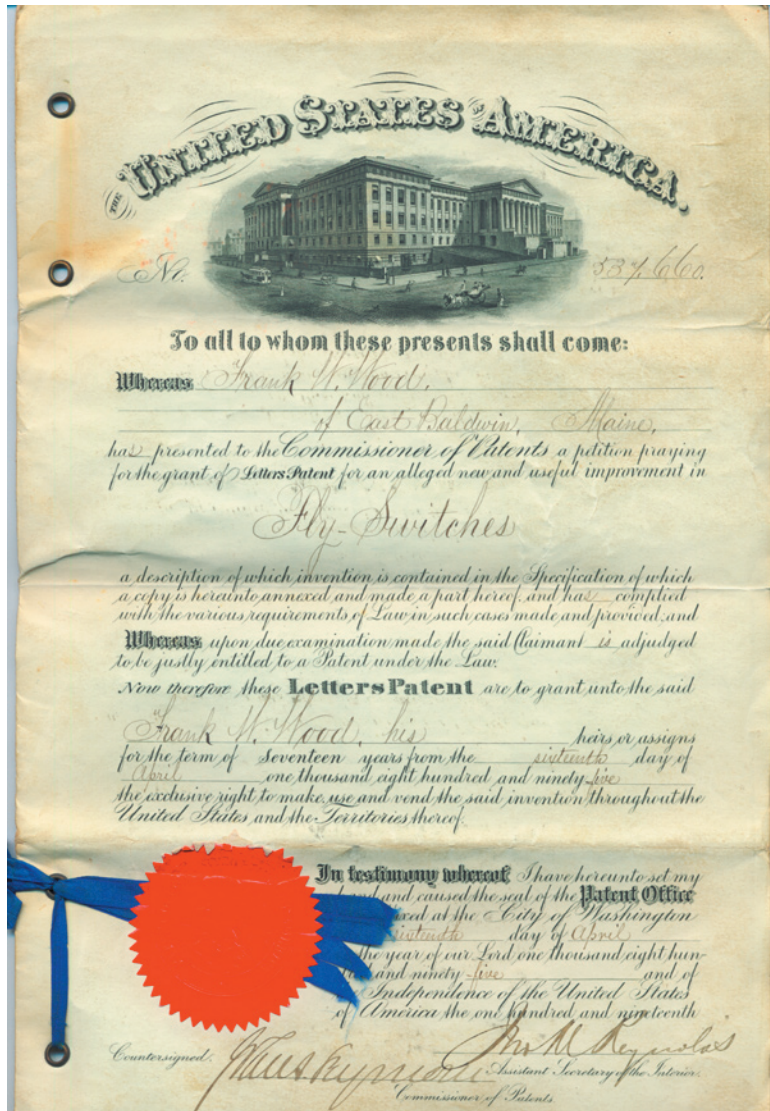 THE UNITED STATES OF AMERICA.
No. 537,660.
To all to whom these presents shall come:
Whereas Frank W. Wood,
of East Baldwin, Maine,
has presented to the Commissioner of Patents a petition praying
for the grant of Letters Patent for an alleged new and useful improvement in
Fly-Switches
a description of which invention is contained in the Specification of which
a copy is hereunto annexed and made a part hereof, and has complied
with the various requirements of Law in such cases made and provided, and
Whereas upon due examination made the said Claimant is adjudged
to be justly entitled to a Patent under the Law.
Now therefore these Letters Patent are to grant unto the said
Frank W. Wood, his heirs or assigns
for the term of Seventeen years from the sixteenth day of
April one thousand eight hundred and ninety-five
the exclusive right to make use and vend the said invention throughout the
United States, and the Territories thereof.
In testimony whereof I have hereunto set my
and caused the seal of the Patent Office
at the City of Washington
sixteenth day of April
the year of our Lord one thousand eight hun-
and ninety-five and of
Independence of the United States
of America the one hundred and nineteenth
Countersigned. Jno M Reynolds
Assistant Secretary of the Interior.
Commissioner of Patents